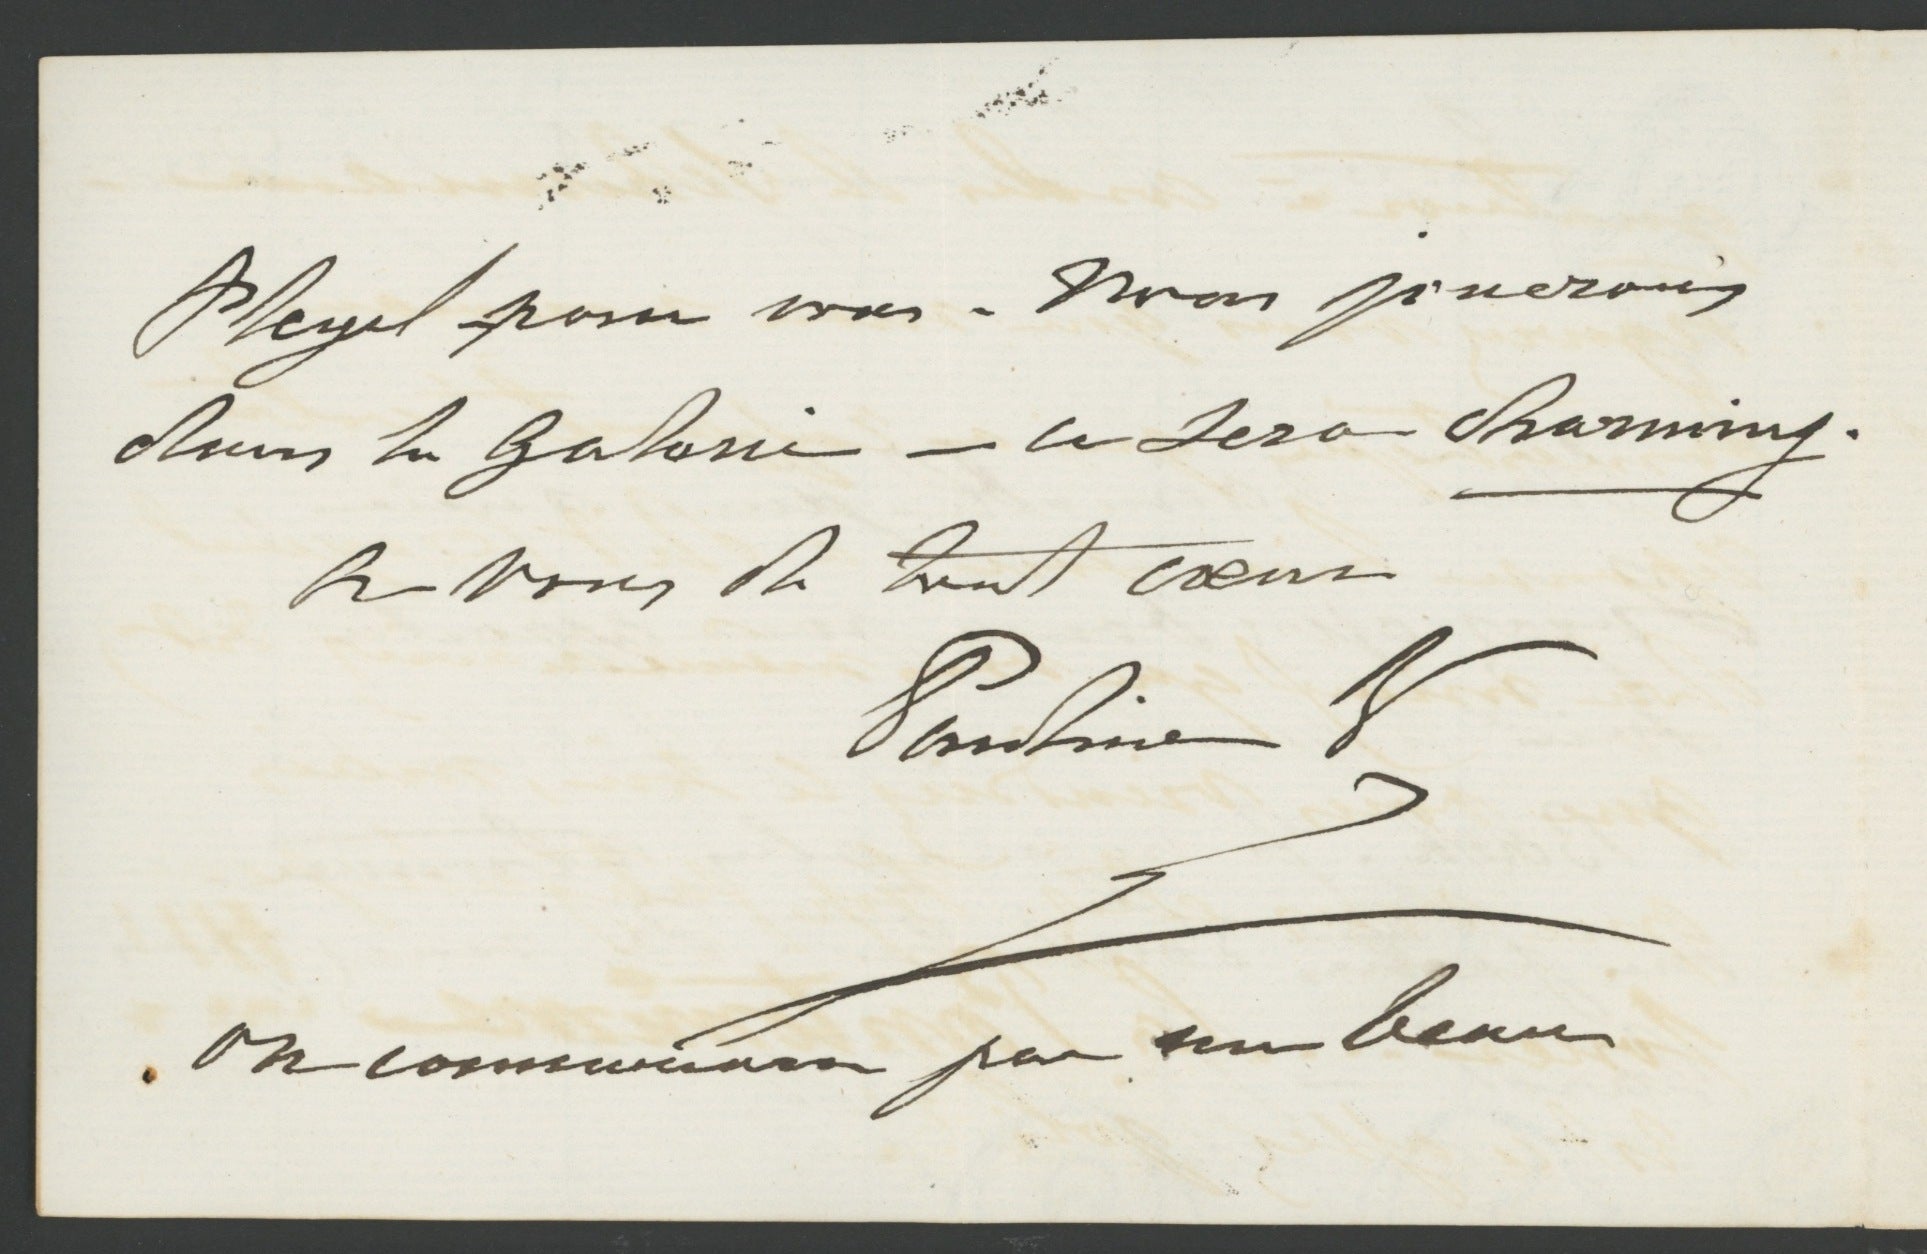 Pleyel pour vous. Nous jouerons
dans la Galerie – ce sera charming.
à vous de tout cœur
Pauline V
on commencera par un beau